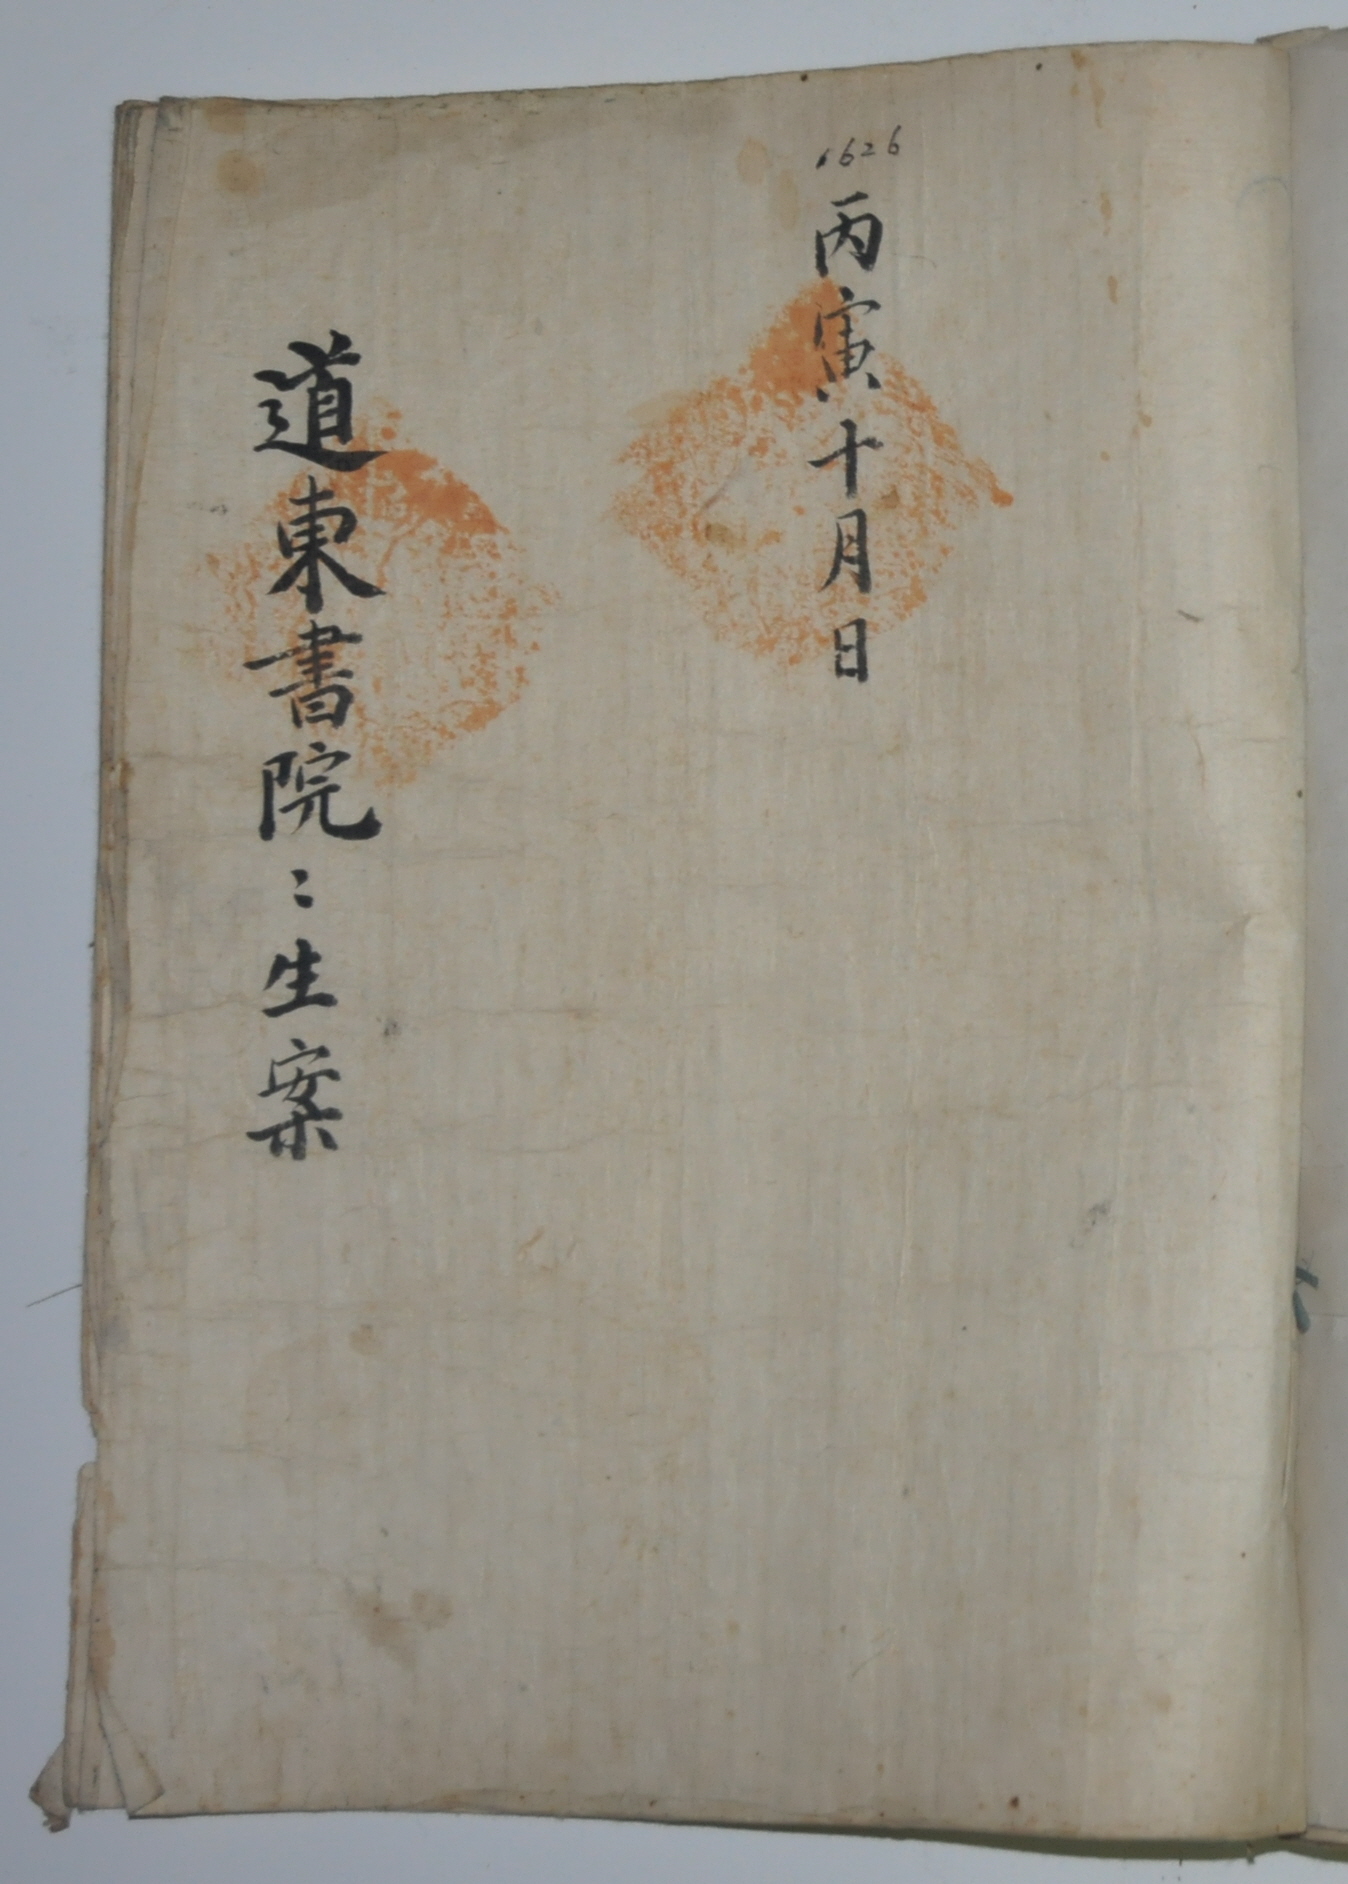 1626
丙寅十月日
道東書院〻生案